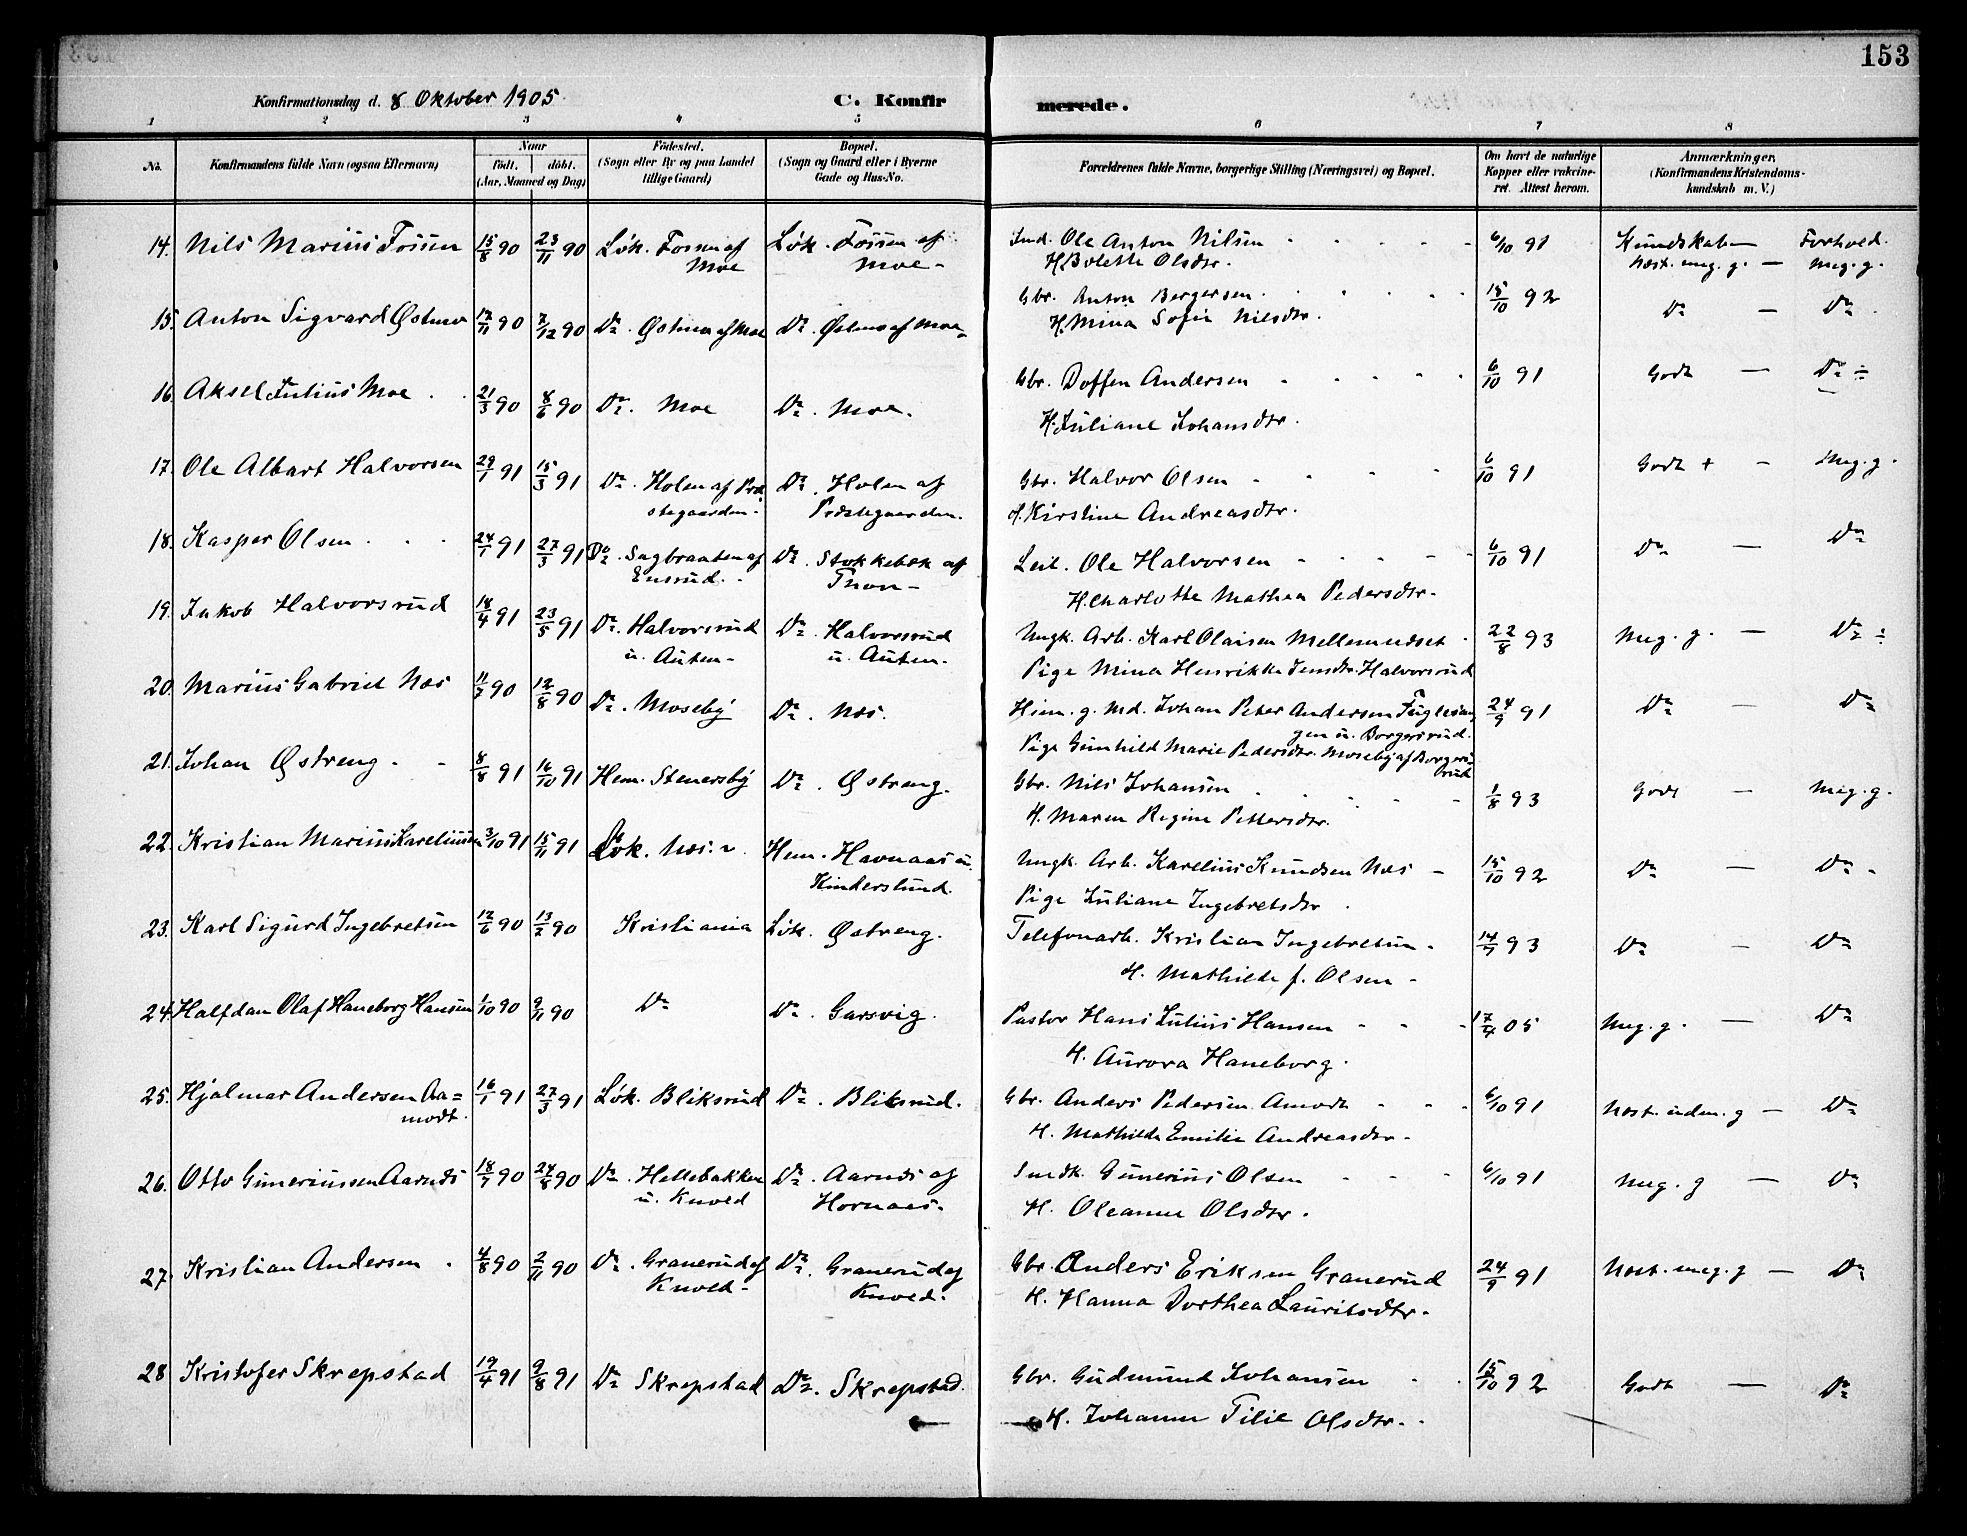 153
Konfirmationsdag d. 8 Oktober 1905
C. Konfirmerede.
1 2 3 4 5 6 7 8
No.
Konfirmandens fulde Navn (ogsaa Efternavn)
Naar
født. døbt.
(Aar, Maaned og Dag)
Fødested.
(Sogn eller By og paa Landet
tillige Gaard)
Bopæl.
(Sogn og Gaard eller i Byerne
Gade og Hus-No.
Forældrenes fulde Navne, borgerlige Stilling (Næringsvei) og Bopæl.
Om havt de naturlige
Kopper eller vakcine-
ret. Attest herom.
Anmærkninger.
(Konfirmandens Kristendoms-
kundskab m. V.)
14. Nils Marius Fossen 15/8 90 23/11 90 Løk. Fossen af Løk. Fossen af Ind. Ole Anton Nilsen 6/10 91 Kundskab — Forhold.
Moe Moe H. Bolette Olsdtr. Næst. meg. g. — Meg. g.
15. Anton Sigvard Østmo 17/11 90 7/12 90 Do. Østmo af Moe Do. Østmo af Moe Gbr. Anton Bergersen 15/10 92 Do — Do
H. Mina Sofie Nilsdtr.
16. Aksel Julius Moe 21/3 90 8/6 90 Do. Moe Do. Moe. Gbr. Doffen Andersen 6/10 91 Godt — Do ÷
H. Juliane Johansdtr.
17. Ole Albart Halvorsen 29/1 91 15/3 91 Do. Holen af Præ Do. Holen af Gbr. Halvor Olsen 6/10 91 Godt + — Meg. g.
stegaarden. Præstegaarden. H. Kirstine Andreasdtr.
18. Kasper Olsen 24/1 91 27/3 91 Do. Sagbraaten af Do. Stokkebæk af Leil. Ole Halvorsen 6/10 91 Do — Do
Ensrud. Thon H. Charlotte Mathea Pedersdtr.
19. Jakob Halvorsrud 18/4 91 23/5 91 Do. Halvorsrud Do. Halvorsrud Ungk. Arb. Karl Olaisen Mellemnæset 22/8 93 Meg. g. — Do ÷
u. Auten u. Auten. Pige Mina Henrikke Jensdtr. Halvorsrud
20. Marius Gabriel Næs 11/7 90 12/8 90 Do. Moseby Do. Næs. Hjem. g. Md. Johan Peter Andersen Fuglesan 24/9 91 Do — Do
gen u. Borgersrud.
Pige Gunhild Marie Pedersdtr. Moseby af Borgers
rud
21. Johan Østreng 8/8 91 16/10 91 Hem. Stenersby Do. Østreng. Gbr. Nils Johansen 1/8 93 Godt — Meg. g.
H. Maren Regine Pettersdtr.
22. Kristian Marius Kareliussen 3/10 91 15/11 91 Løk. Næs. Hem. Havnaas u. Ungk. Arb. Karelius Knudsen Næs 15/10 92 Do — Do
Kinderslund. Pige Juliane Ingebretsdtr.
23. Karl Sigurd Ingebretsen 12/6 90 13/7 90 Kristiania Løk. Østreng. Telefonarb. Kristian Ingebretsen 14/7 93 Do — Do
H. Mathilde f. Olsen
24. Halfdan Olaf Haneborg Hansen 1/10 90 9/11 90 Do Do. Garsvig. Pastor Hans Julius Hansen 17/4 05 Meg. g. — Do
H. Aurora Haneborg.
25. Hjalmar Andersen Aa= 16/1 91 27/3 91 Løk. Bliksrud Do. Bliksrud. Gbr. Anders Pedersen Amodt 6/10 91 Næst. udm. g — Do
modt. H. Mathilde Emilie Andreasdtr.
26. Otto Gunneriussen Aarnæs 18/7 90 24/8 90 Do. Hellebakken Do. Aarnæs af Smdk. Gunerius Olsen 6/10 91 Meg. g — Do
u. Knold Hornaas. H. Oleanne Olsdtr.
27. Kristian Andersen 4/8 90 2/11 90 Do. Granerud af Do. Granerud af Gbr. Anders Eriksen Granerud 24/9 91 Næst. meg. g — Do
Knold. Knold. H. Hanna Dorthea Lauritsdtr.
28 Kristofer Skrepstad 19/4 91 9/8 91 Do Skrepstad Do. Skrepstad. Gbr. Gudmund Johansen 15/10 92 Godt — Do
H. Johanne Tilie Olsdtr.